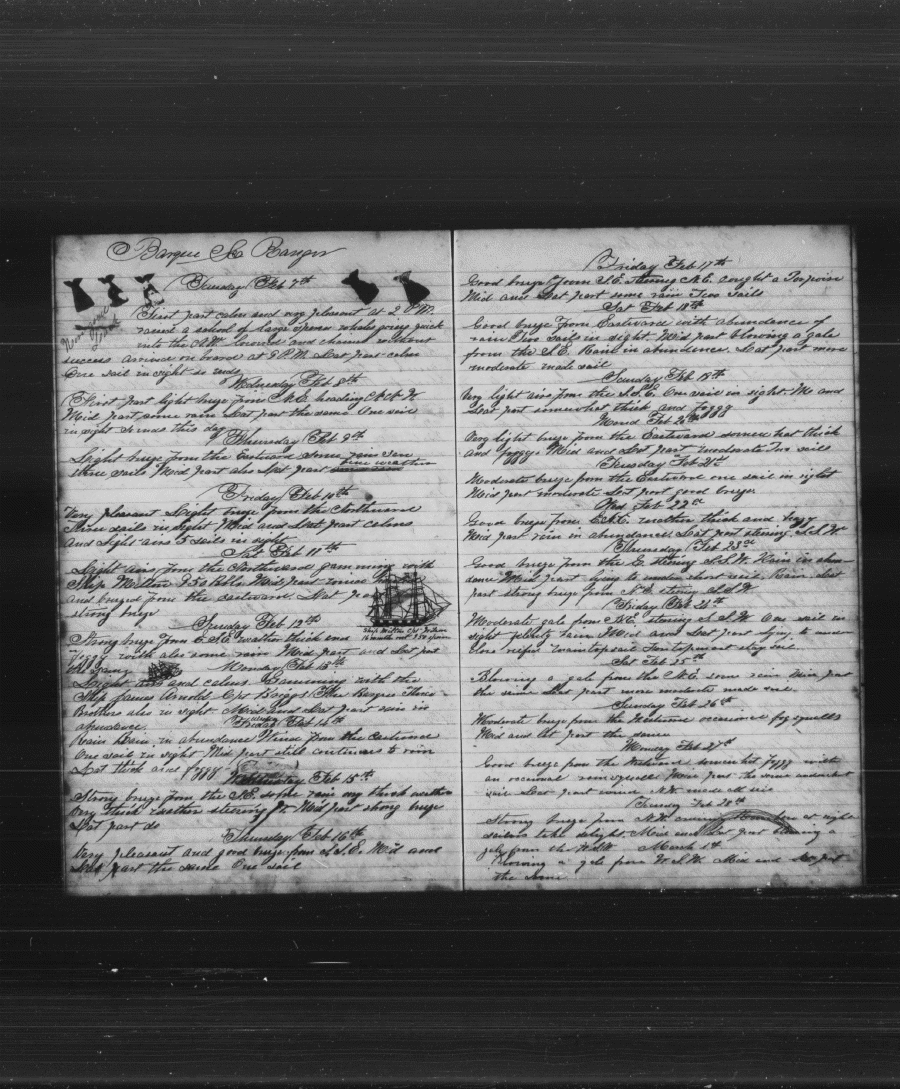 Barque Sea Ranger
Tuesday Feb 7th
First part calm and very pleasant at 2 P.M.
raised a school of large sperm whales going quick
into the NW lowered and chased without
success arrived on board at 8 P.M. Last part calm
One sail in sight so ends
Wednesday Feb 8th
First part light breeze from N.E. heading N.W.
Mid part some rain Last part the same One sail
in sight so ends this day
Thursday Feb 9th
Light breeze from the Eastward some rain seen
three sails Mid part also Last part
fine weather
Friday Feb 10th
Very pleasant Light breeze from the Northward
Three sails in sight Mid and Last part calms
and light airs 5 sails in sight
Sat Feb 11th
Light airs from the Northward gamming with
Ship Milton 950 bbls Mid part
and breezed from the eastward. Last part
strong breeze
Ship Milton Cpt
16 months out 950 sperm
Sunday Feb 12th
Strong breeze from E.S.E. weather thick and
foggy with also some rain Mid part and Last part
the same
Monday Feb 13th
Light airs and calms Gamming with the
Ship James Arnold Cpt The Barque Three
Brothers also in sight. Mid and Last part rain in
abundance
Tuesday
Feb 14th
Rain Rain in abundance Wind from the Eastward
One sail in sight Mid part still continues to rain
Last thick and foggy
Wednesday Feb 15th
Strong breeze from the S.E. some rain thick weather
very thick weather steering Mid part strong breeze
Last part do
Thursday Feb 16th
Very pleasant and good breeze from S.S.E. Mid and
Last part the same One sail
Friday Feb 17th
Good breeze from S.E. steering N.E. caught a Porpoise
Mid and Last part some rain Two sails
Sat Feb 18th
Good breeze from Eastward with abundance of
rain Two sails in sight. Mid part blowing a gale
from the S.E. Rain in abundance. Last part more
moderate made sail
Sunday Feb 19th
Very light airs from the S.S.E. One sail in sight. Mid and
Last part somewhat thick and foggy
Mond Feb 20th
Very light breeze from the Eastward somewhat thick
and foggy. Mid and Last part moderate two sails
Tuesday Feb 21st
Moderate breeze from the Eastward one sail in sight
Mid part moderate Last part good breeze
Wed Feb 22nd
Good breeze from E.N.E. weather thick and foggy
Mid part rain in abundance. Last part steering S.S.W.
Thursday Feb 23rd
Good breeze from the E. steering S.S.W. Rain in abun-
dance Mid part lying to under short sail. Rain Last
part strong breeze from N.E. steering S.S.W.
Friday Feb 24th
Moderate gale from N.E. steering S.S.W. One sail in
sight plenty rain Mid and Last part lying to under
close reefed maintopsail foretopmast stay sail.
Sat Feb 25th
Blowing a gale from the N.E. some rain Mid part
the same Last part more moderate made sail
Sunday Feb 26th
Moderate breeze from the Westward occasional fog squalls
Mid and last part the same
Monday Feb 27th
Good breeze from the Westward somewhat foggy with
an occasional rain squall Mid part the same under short
sail Last part made all sail
Tuesday Feb 28th
Strong breeze from N.W. at night
sailors take delight. Mid and Last part blowing a
gale from the W.S.W. March 1st
Blowing a gale from W.S.W Mid and last part
the same